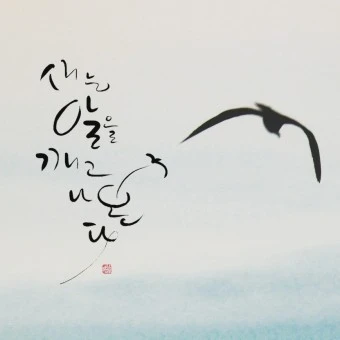 새는
알을
깨고
나온
다